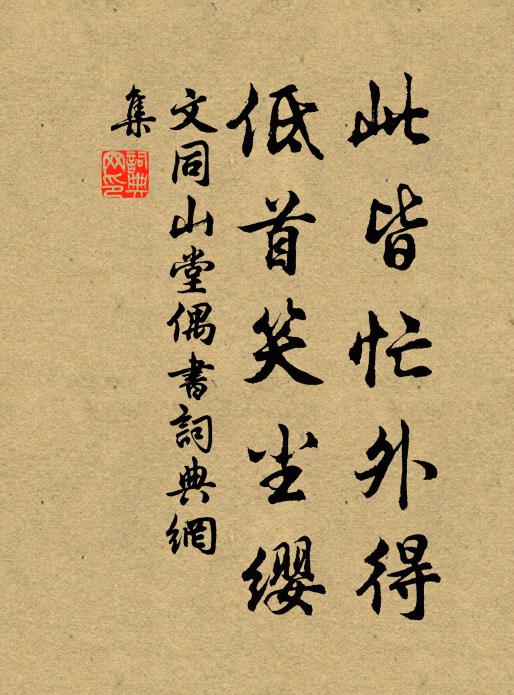 此皆忙外得
低首笑尘缨
文同山堂偶書詞典網
集
詞典
网印